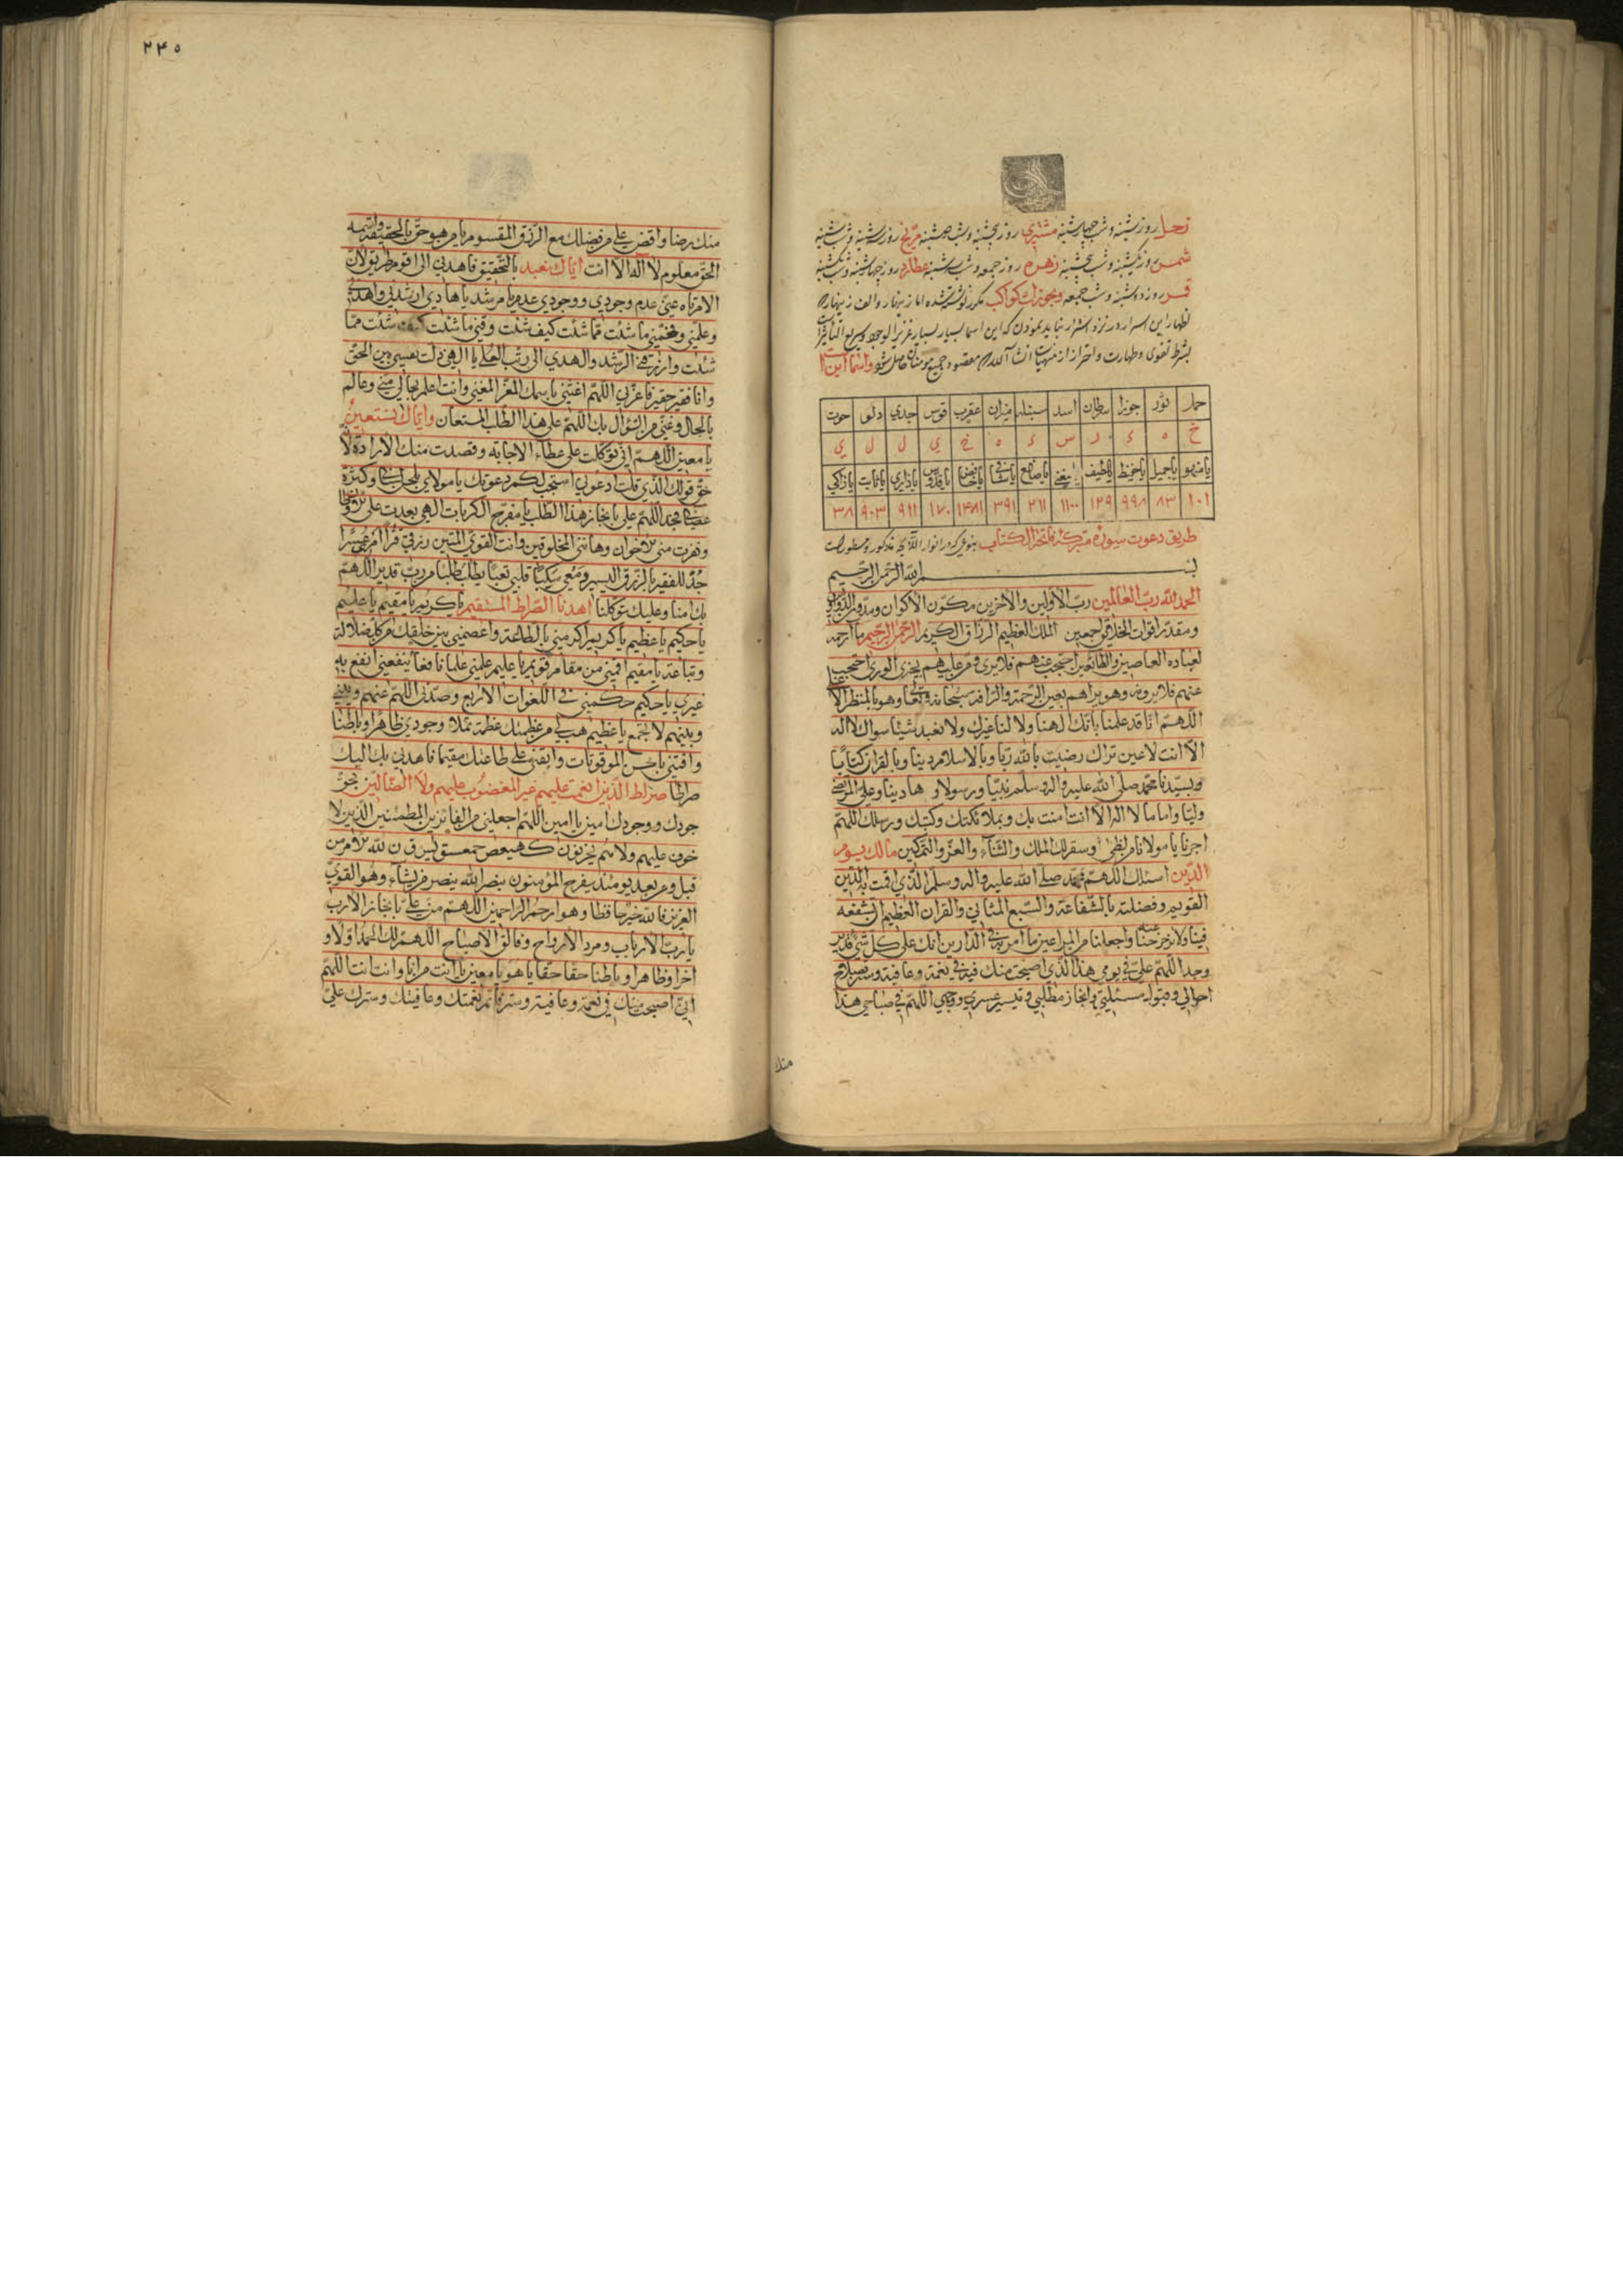 زحل روز شنبه و شب چهارشنبه مشتری روز پنجشنبه و شب دوشنبه مریخ روز سه شنبه و شب شنبه
شمس روز یکشنبه و شب پنجشنبه زهره روز جمعه و شب سه شنبه عطارد روز چهارشنبه و شب یکشنبه
قمر روز دوشنبه و شب جمعه و بخورات کواکب مکرر نوشته شده اما زینهار والف زینهار که
اظهار این اسرار در نزد اشرار نباید نمودن که این اسما بسیار بسیار عزیز الوجود و سریع التأثیر است
بشرط تقوی و طهارت و احتراز از منهیات انشآ الله مقصود جمیع مومنان حاصل شود و اسما این است
حمل ثور جوزا سرطان اسد سنبله میزان عقرب قوس جدی دلو حوت
خ ه ء ر س ء ه خ ی ل ل ی
یا جمیل یا حفیظ یا لطیف یا قدوس یا ثابت یا زاکی
۱۰۱ ۸۳ ۹۹۸ ۱۲۹ ۱۱۰۰ ۲۱۱ ۳۹۱ ۱۴۸۱ ۱۷۰ ۹۱۱ ۹۰۳ ۳۸
طریق دعوت سوره متبرکه فاتحة الکتاب بنوعی که در انوار مذکور و مسطور است
بسم الله الرحمن الرحیم
الحمد لله رب العالمین رب الأولین والآخرین مکون الاکوان ومدور الدوران
ومقدر اقوات الخلائق اجمعین الملک العظیم الرزاق الکریم الرحمن الرحیم ما ارحمه
لعباده العاصین والطائعین احتجب عنهم فلا یری ومن علیهم یجزی الوری احتجب
عنهم فلا یرونه وهو یراهم بعین الرحمة والرافة سبحانه وتعالی وهو بالمنظر الاعلی
اللهم انا قد علمنا بانک الهنا ولا لنا غیرک ولا نعبد شیئا سواک لا اله
الا انت لا عین تراک رضیت بالله ربا وبالاسلام دینا وبالقران کتابا
وبسیدنا محمد صلی الله علیه واله وسلم نبیا ورسولا و هادینا وعلی المرتضی
ولیا واماما لا اله الا انت امنت بک وبملائکتک وکتبک ورسلک اللهم
اجرنا یا مولانا من لظی وسقر لک الملک والثناء والعز والتمکین مالک یوم
الدین اسئلک اللهم بمحمد صلی الله علیه واله وسلم الذی اقمت به الدین
القویم وفضلته بالشفاعة والسبع المثانی والقران العظیم ان تشفعه
فینا ولا تزحزحنا عنه واجعلنا من المبراعین ما امر به فی الدارین انک علی کل شیء قدیر
وجد اللهم علی فی یومی هذا الذی اصبحت منک فیه فی نعمة وعافیة وستر بصلاح
احوالی وقبول مسئلتی وانجاز مطلبی وتیسیر عسری اللهم فی صباحی هذا
منک
۲۴۵
منک رضا واقض علی من فضلک مع الرزق المقسوم یا من هو حق بالحقیقة واسمه
الحق معلوم لا اله الا انت ایاک نعبد بالتحقیق فاهدنی الی اقوم طریق لان
الامر تاه عنی عدم وجودی ووجودی عدم یا مرشد یا هادی ارشدنی واهدنی
وعلمنی وفهمنی ما شئت مما شئت کیف شئت وقنی ما شئت کیف شئت مما
شئت وارزقنی الرشد والهدی الی رتب العلی یا الهی ذلت نفسی بین الحق
وانا فقیر حقیر فاعزنی اللهم اغننی باسمک المعز المغنی وانت اعلم بحالی منی وعالم
بالحال وغنی من السؤال بک اللهم علی هذا الطلب المستعان وایاک نستعین
یا معین اللهم انی توکلت علی عطاء الاجابة وقصدت منک الارادة لا
حق قولک الذی قلت ادعونی استجب لکم دعوتک یا مولای
فجد اللهم علی بانجاز هذا الطلب یا مفرج الکربات الهی بعدت علی
ونفرت منی الاخوان وهاننی المخلوقین وانت القوی المتین رزقی قرا امر عسرا
جد للفقیر بالرزق الیسیر ومعی سکینا قلبی تعبا یطلب طلبا من رب قدیر اللهم
بک امنا وعلیک توکلنا اهدنا الصراط المستقیم یا کریم یا مقیم یا علیم
یا حکیم یا عظیم یا کریم اکرمنی بالطاعة واعصمنی بین خلقک من کل ضلالة
وتباعة یا مقیم اقمنی من مقام قویم یا علیم علمنی علما نافعا ینفعنی انفع به
غیری یا حکیم حکمنی فی اللغوات الاربع وصدنی اللهم عنهم وبینی
وبینهم لا تجمع یا عظیم هب لی من عظمتک عظمة تملأ وجودی ظاهرا وباطنا
واقتنی باحسن الموقوتات وابقنی علی طاعتک مقیما فاهدنی بک الیک
صراطا صراط الذین انعمت علیهم غیر المغضوب علیهم ولا الضالین بحق
جودک ووجودک امین یا امین اللهم اجعلنی من الفائزین المطمئنین الذین لا
خوف علیهم ولا هم یحزنون کهیعص حمعسق یس ق ن لله الامر من
قبل ومن بعد یومئذ یفرح المؤمنون بنصر الله ینصر من یشاء وهو القوی
العزیز فالله خیر حافظا وهو ارحم الراحمین اللهم من علی بانجاز الارب
یا رب الارباب ومرد الارواح وفالق الاصباح اللهم لک الحمد اولا و
اخرا وظاهرا وباطنا حقا حقا یا هو یا معین یا انت من انا وانت انت اللهم
انی اصبحت منک فی نعمة وعافیة وستر فاتم نعمتک وعافیتک وسترک علی